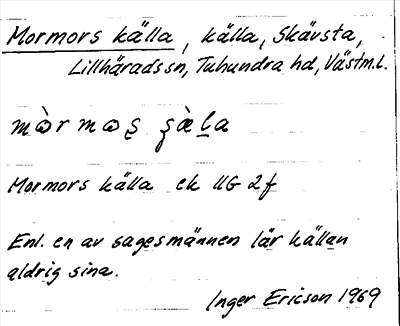 Mormors källa, källa, Skävsta,
Lillhärads sn, Tuhundra hd, Västm.l.
mɷ̀r mɷʂ ʂàḷa
Mormors källa ek UG 2f
Enl. en av sagesmännen lär källan
aldrig sina.
Inger Ericson 1969